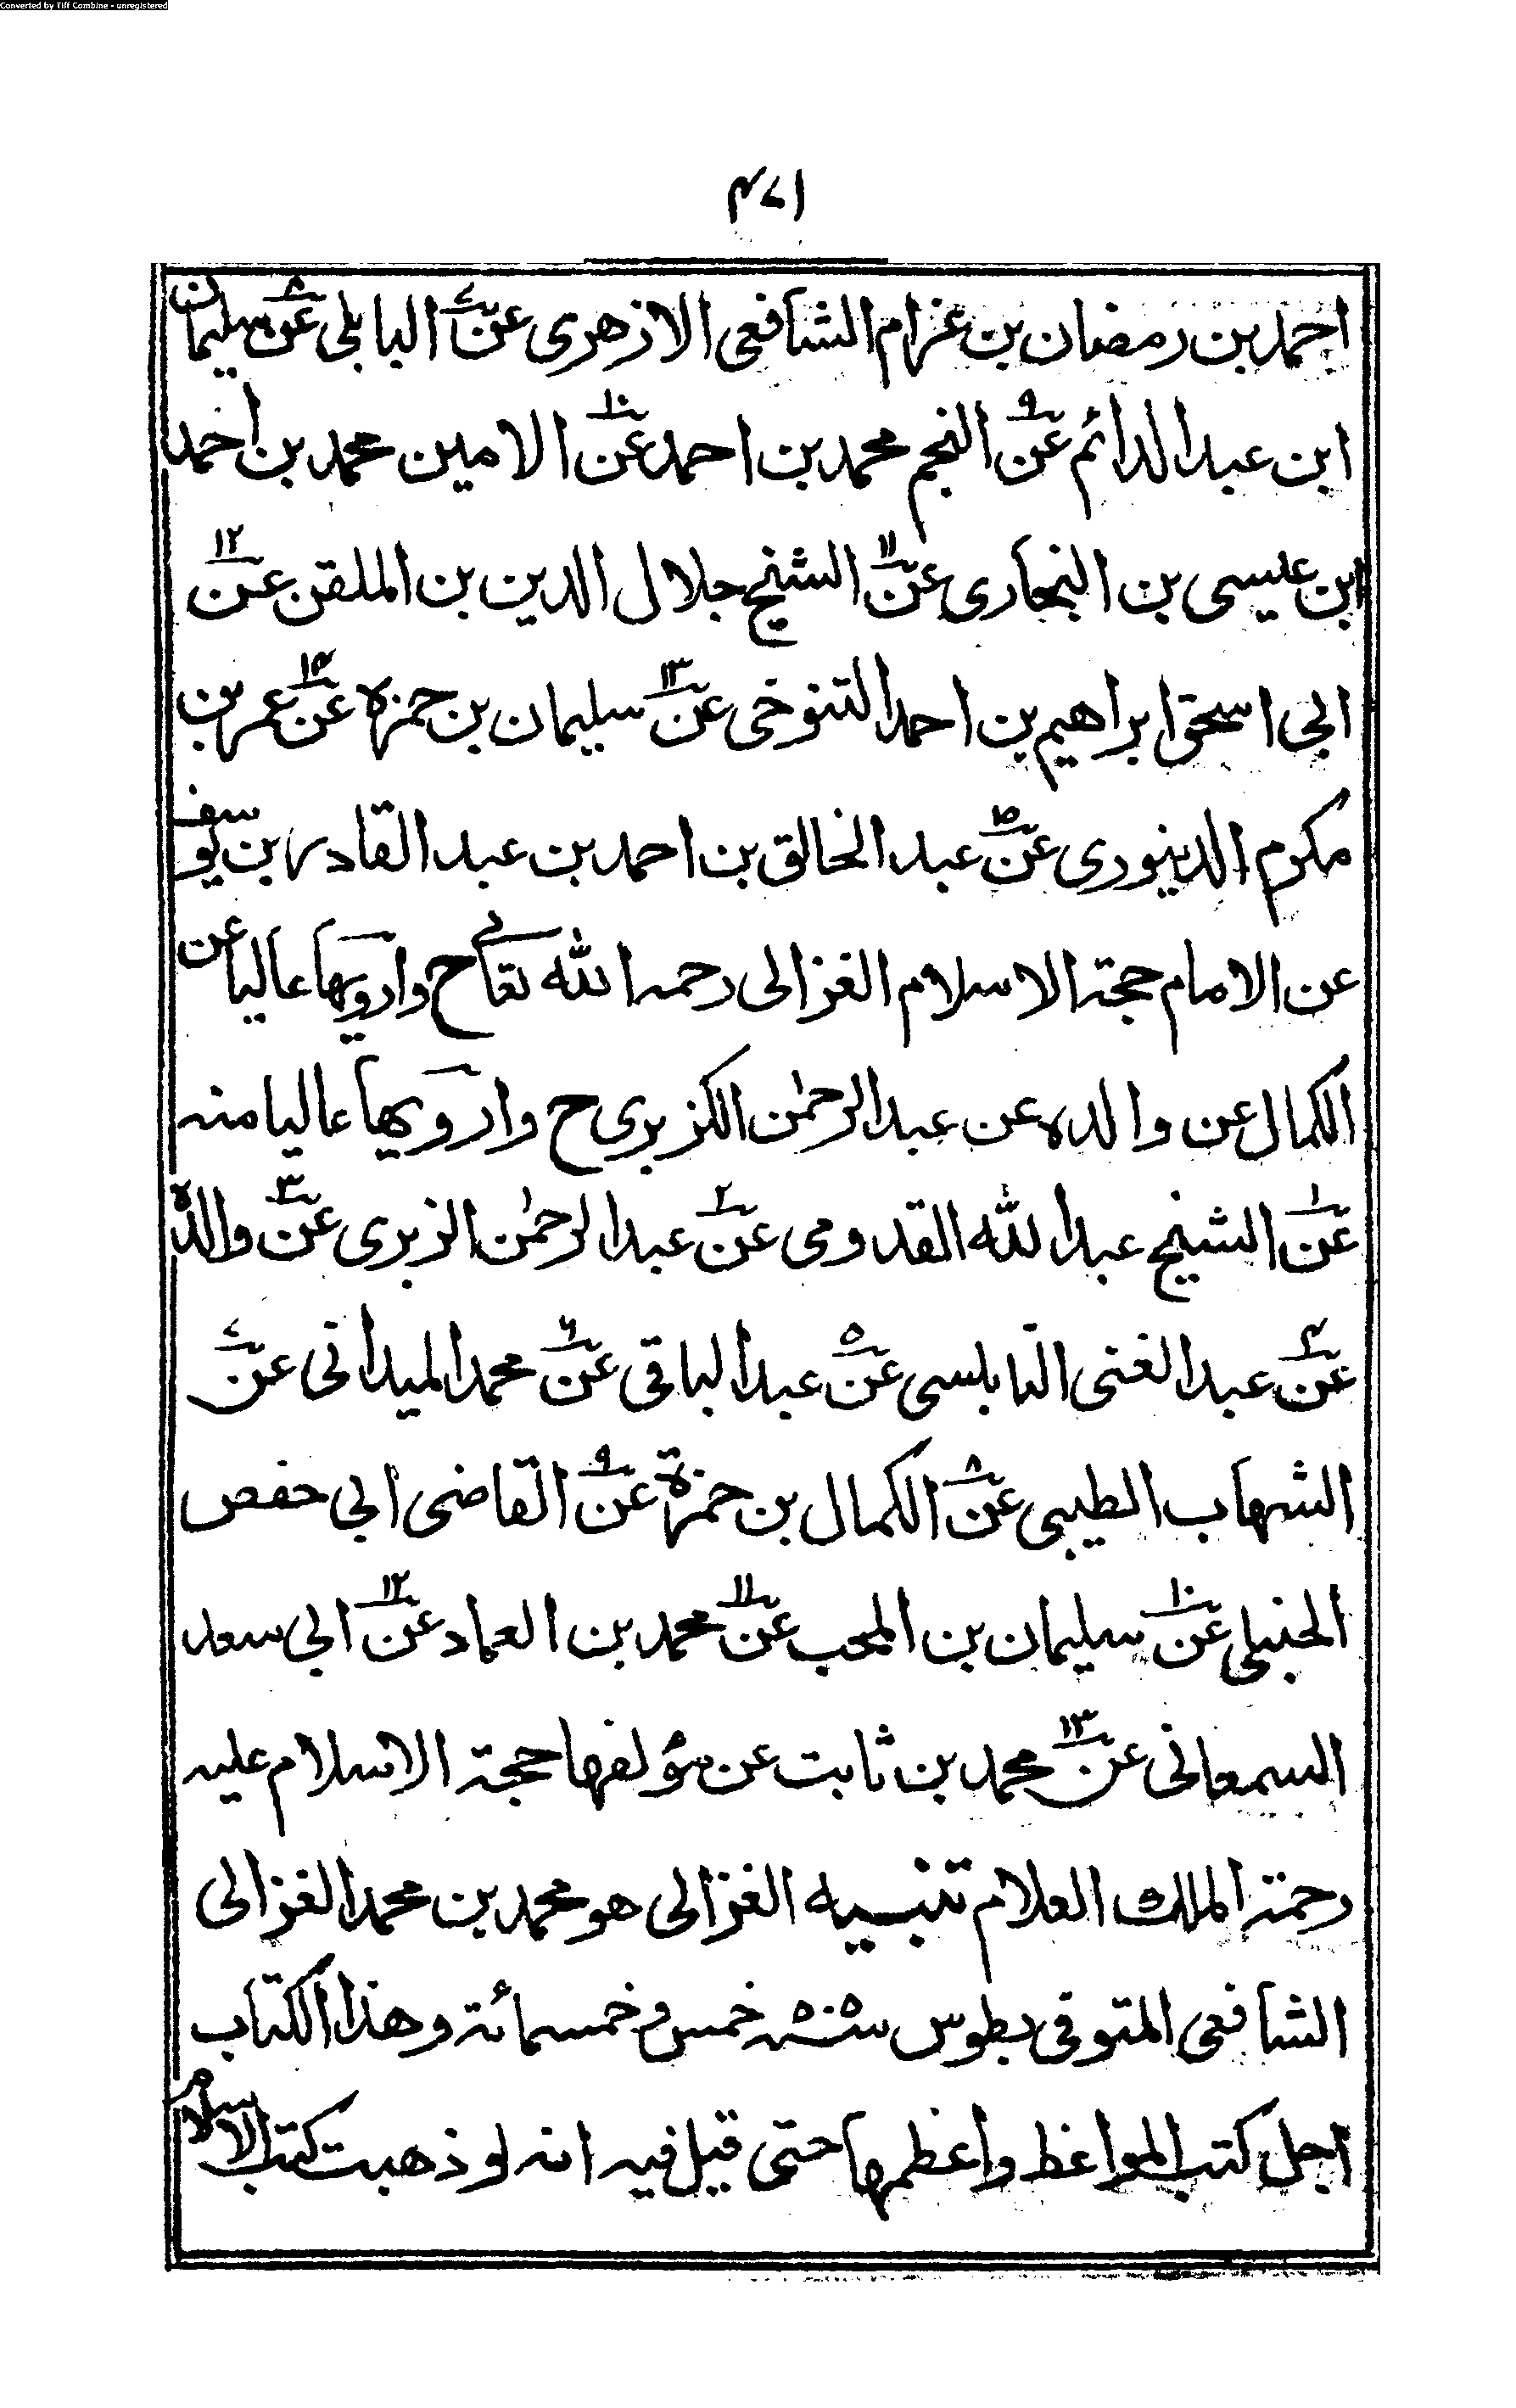 Converted by Tiff Combine - unregistered
۴۷۱
احمد بن رمضان بن عزام الشافعی الازهری عن۷ البابلی عن۸ سلیمان
ابن عبد الدائم عن۹ النجم محمد بن احمد عن۱۰ الامین محمد بن احمد
ابن عیسی بن النجاری عن۱۱ الشیخ جلال الدین بن الملقن عن۱۲
ابی اسحق ابراهیم بن احمد التنوخی عن۱۳ سلیمان بن حمزه عن۱۴ عمر بن
مکرم الدینوری عن۱۵ عبد الخالق بن احمد بن عبد القادر بن یوسف
عن الامام حجة الاسلام الغزالی رحمه الله تعالی ح وارویها عالیا عن
الکمال عن والده عن عبد الرحمٰن الکزبری ح وارویها عالیا منه
عن۱ الشیخ عبد الله القدومی عن۲ عبد الرحمٰن الزبری عن۳ والده
عن۴ عبد الغنی النابلسی عن۵ عبد الباقی عن۶ محمد المیدانی عن۷
الشهاب الطیبی عن۸ الکمال بن حمزة عن۹ القاضی ابی حفص
الحنبلی عن۱۰ سلیمان بن المحب عن۱۱ محمد بن العماد عن۱۲ ابی سعد
السمعانی عن۱۳ محمد بن ثابت عن مؤلفها حجة الاسلام علیه
رحمة الملک العلام تنبیه الغزالی هو محمد بن محمد الغزالی
الشافعی المتوفی بطوس سنة ۵۰۵ خمس و خمسمائة و هذا الکتاب
اجل کتب المواعظ واعظمها حتی قیل فیه انه لو ذهبت کتب الاسلام